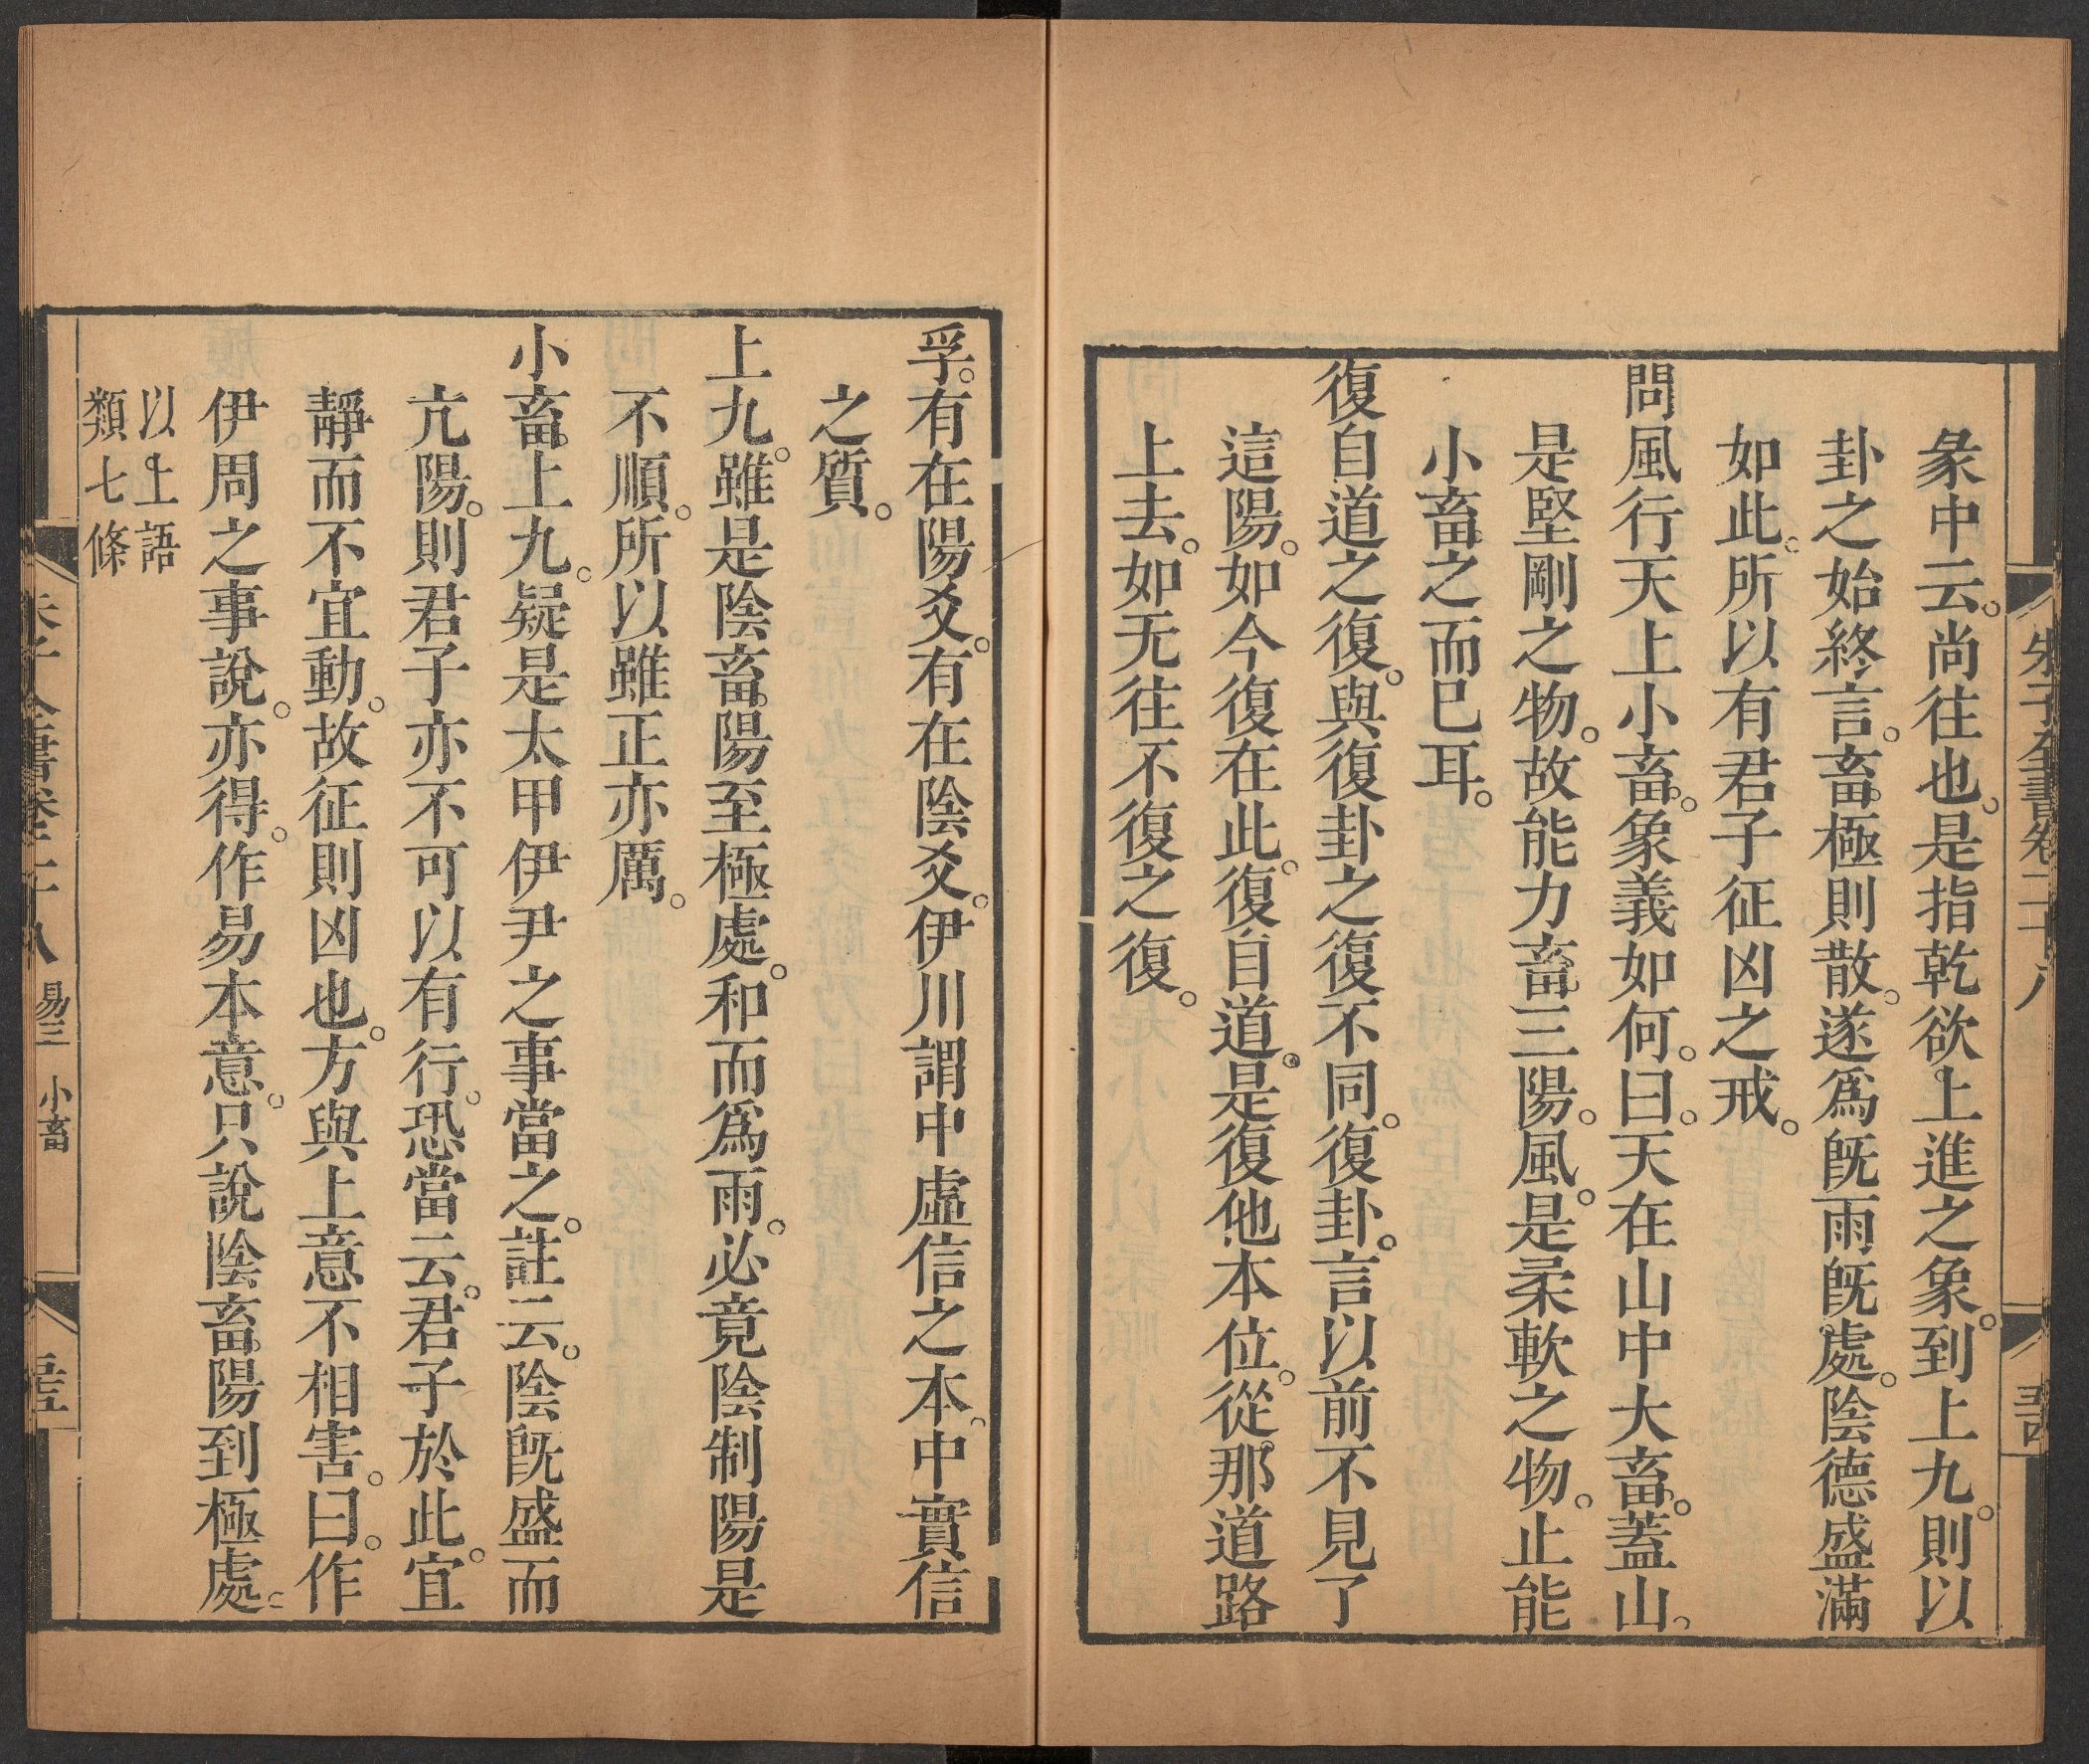 朱子全書卷二十八
彖中云。尚往也。是指乾欲上進之象。到上九。則以
卦之始終言。畜極則散。遂爲旣雨旣處。陰德盛滿
如此。所以有君子征凶之戒。
問風行天上小畜。象義如何。曰。天在山中大畜。蓋山。
是堅剛之物。故能力畜三陽。風。是柔軟之物。止能
小畜之而已耳。
復自道之復。與復卦之復不同。復卦。言以前不見了
這陽。如今復在此。復自道。是復他本位。從那道路
上去。如无往不復之復。
孚。有在陽爻。有在陰爻。伊川謂中虛信之本。中實信
之質。
上九。雖是陰畜陽至極處。和而爲雨。必竟陰制陽是
不順。所以雖正亦厲。
小畜上九。疑是太甲伊尹之事當之。註云。陰旣盛而
亢陽。則君子亦不可以有行。恐當云。君子於此。宜
靜而不宜動。故征則凶也。方與上意不相害。曰。作
伊周之事說。亦得。作易本意。只說陰畜陽到極處。
以上語
類七條
朱子全書卷二十八 易三 小畜